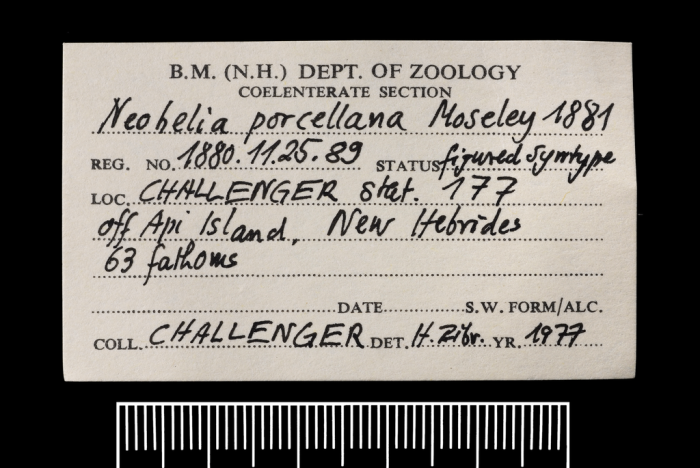 B.M. (N.H.) DEPT. OF ZOOLOGY
COELENTERATE SECTION
Neohelia porcellana Moseley 1881
REG. NO. 1880.11.25.89 STATUS figured Syntype
LOC. CHALLENGER stat. 177
off Api Island, New Hebrides
63 fathoms
DATE S.W. FORM/ALC.
COLL. CHALLENGER DET. H. Zibr. YR. 1977